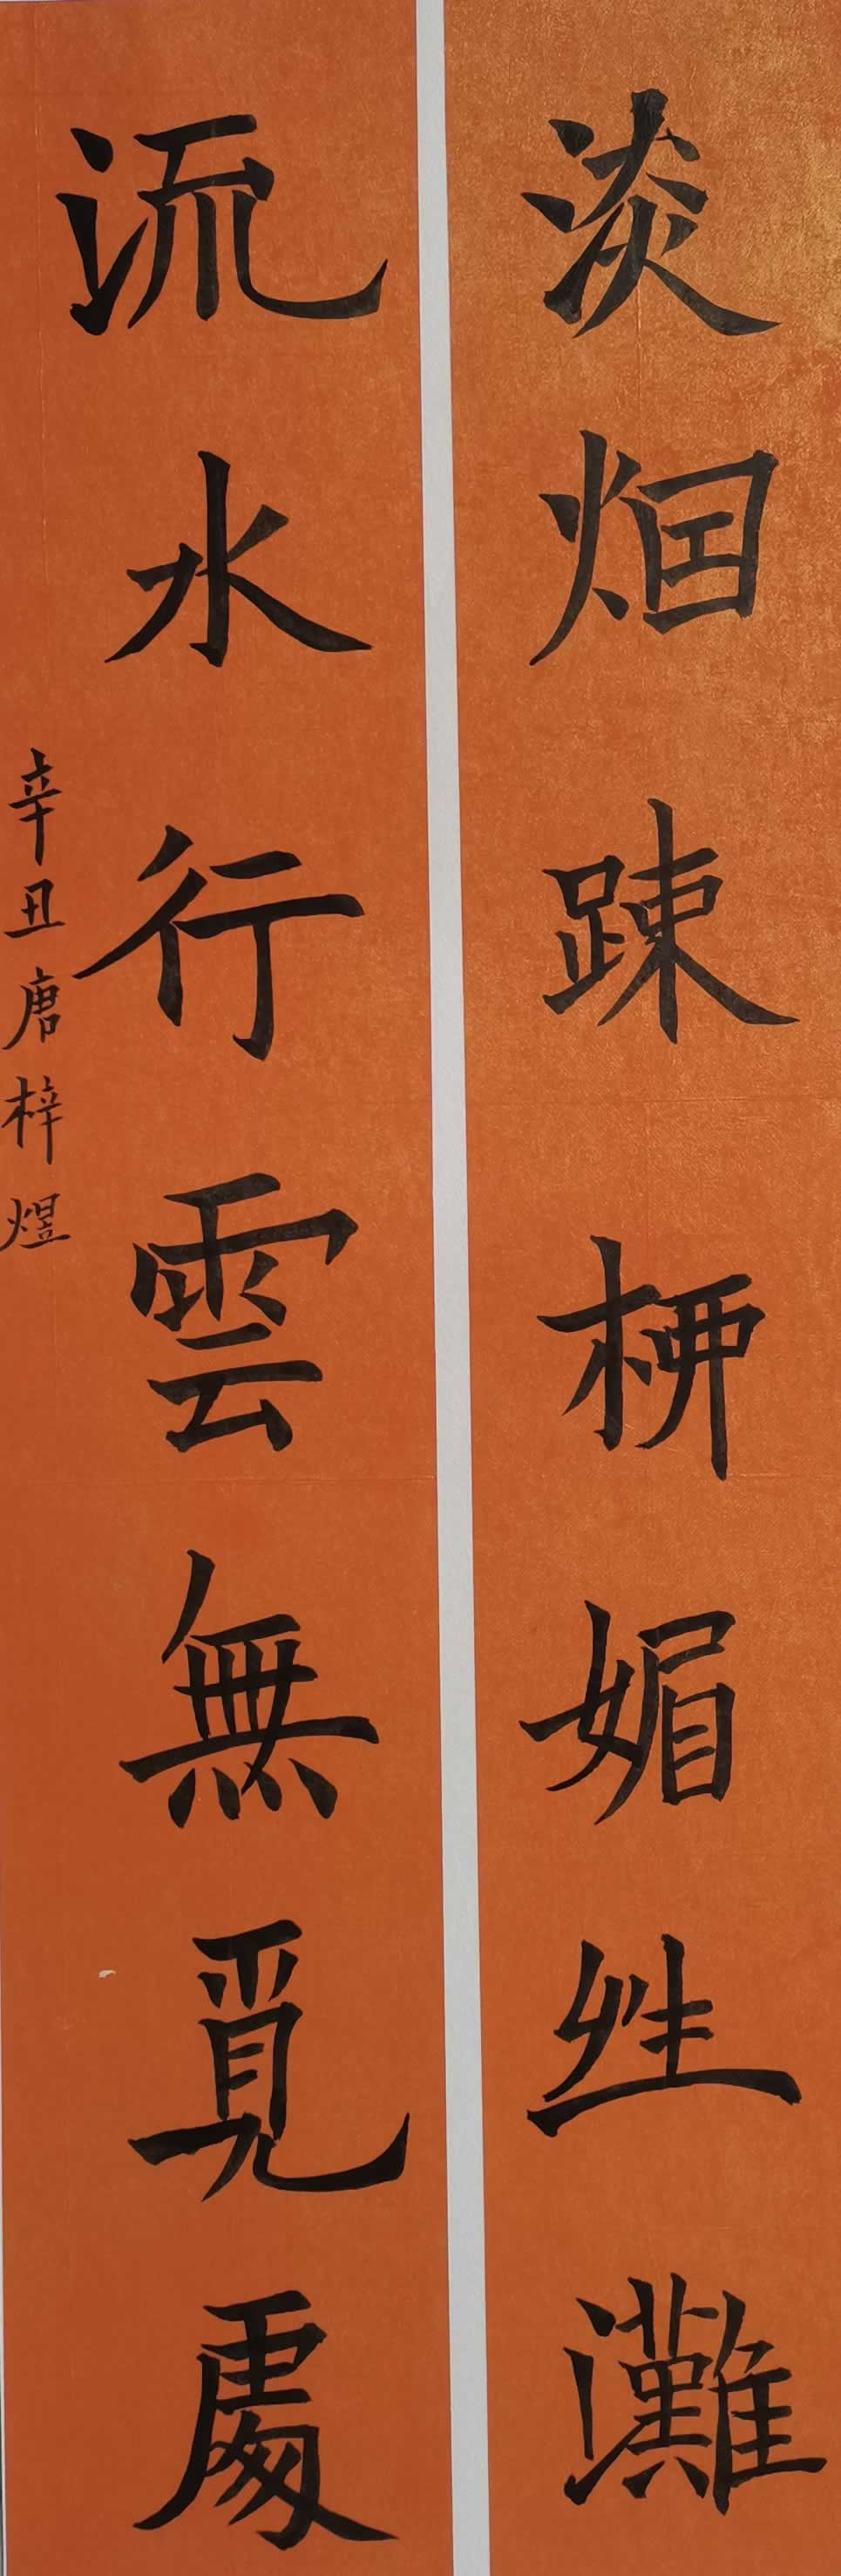 淡烟踈桺媚夝灘
流水行雲無覓處
辛丑唐梓煜